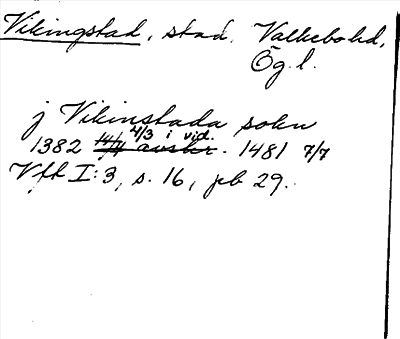 Vikingstad, stad. Valkebo hd,
Ög.l.
j Vikinstada sokn
4/3 i vid.
1382 14/4 avskr. 1481 7/7
Vfk I:3, s. 16, pb 29.